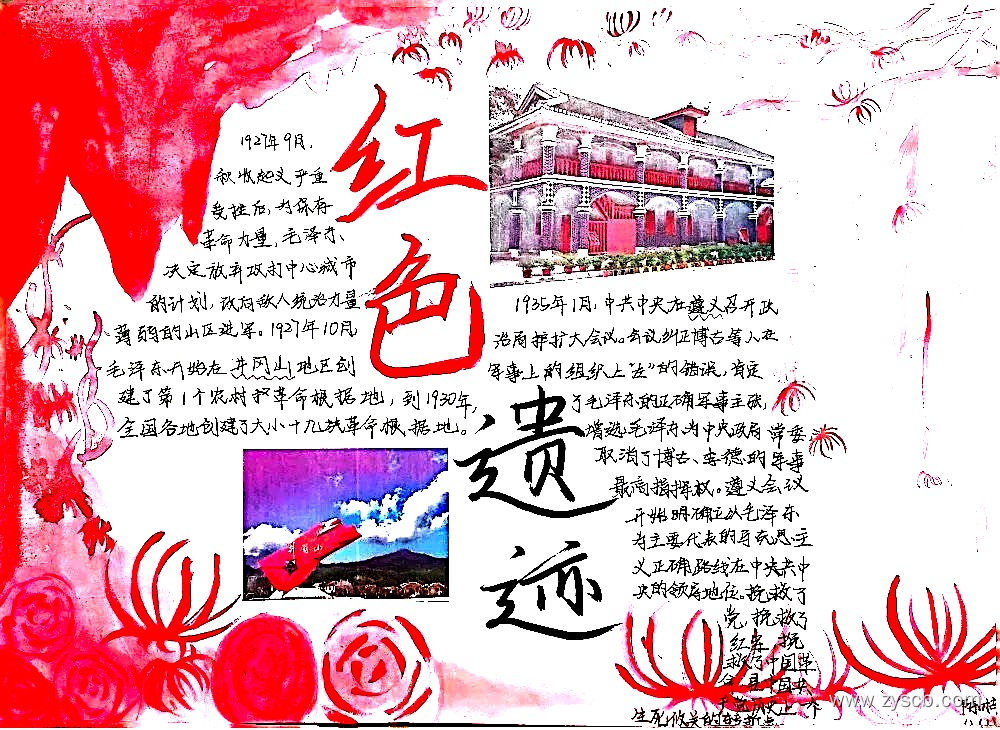 红色
遗迹
1927年9月,
秋收起义严重
受挫后,为保存
革命力量,毛泽东、
决定放弃攻打中心城市
的计划,改向敌人统治力量
薄弱的山区进军。1927年10月
毛泽东开始在井冈山地区创
建了第1个农村革命根据地,到1930年,
全国各地创建了大小十几块革命根据地。
井冈山
1935年1月,中共中央在遵义召开政
治局扩大会议。会议纠正博古等人在
军事上的组织上"左"的错误,肯定
了毛泽东的正确军事主张,
增选毛泽东为中央政局常委
取消了博古、李德的军事
最高指挥权。遵义会议
开始明确立以毛泽东
为主要代表的马克思主
义正确路线在中央共中
央的领导地位。挽救了
党,挽救了
红军,挽
救了中国革
生死攸关的转折点
www.zyscb.com